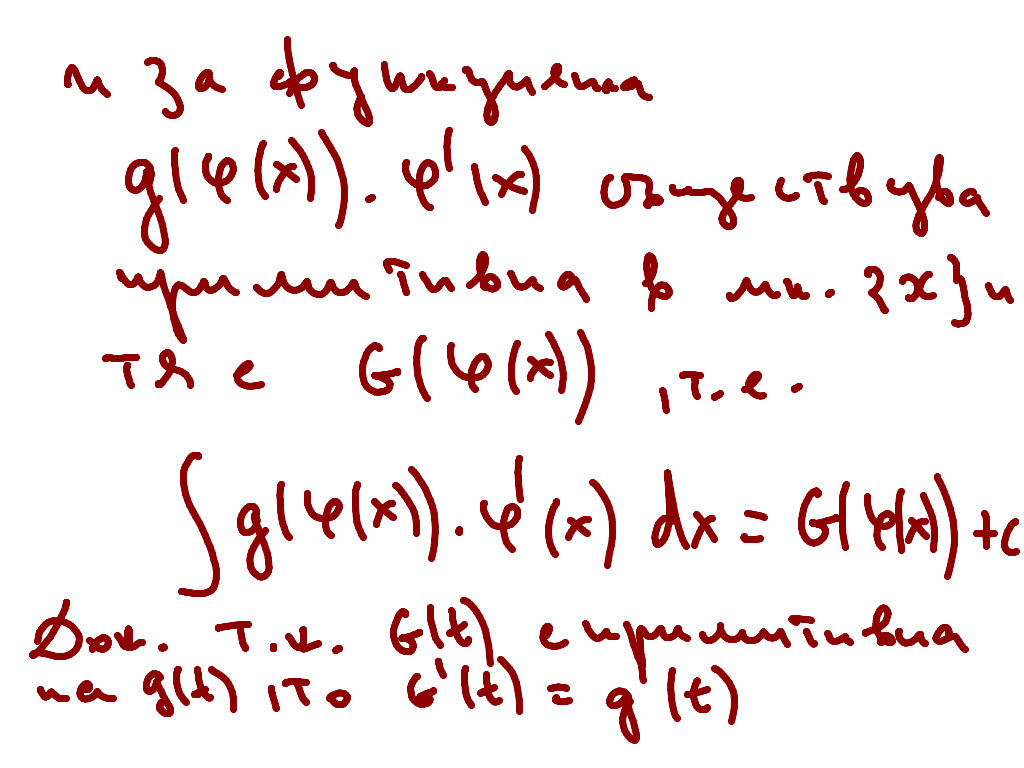 и за функцията
g(φ(x)).φ'(x) съществува
примитивна в мн. {x} и
тя е G(φ(x)), т.е.
∫ g(φ(x)).φ'(x) dx = G(φ(x)) + C
Док. Т.к. G(t) е примитивна
на g(t), то G'(t) = g(t)